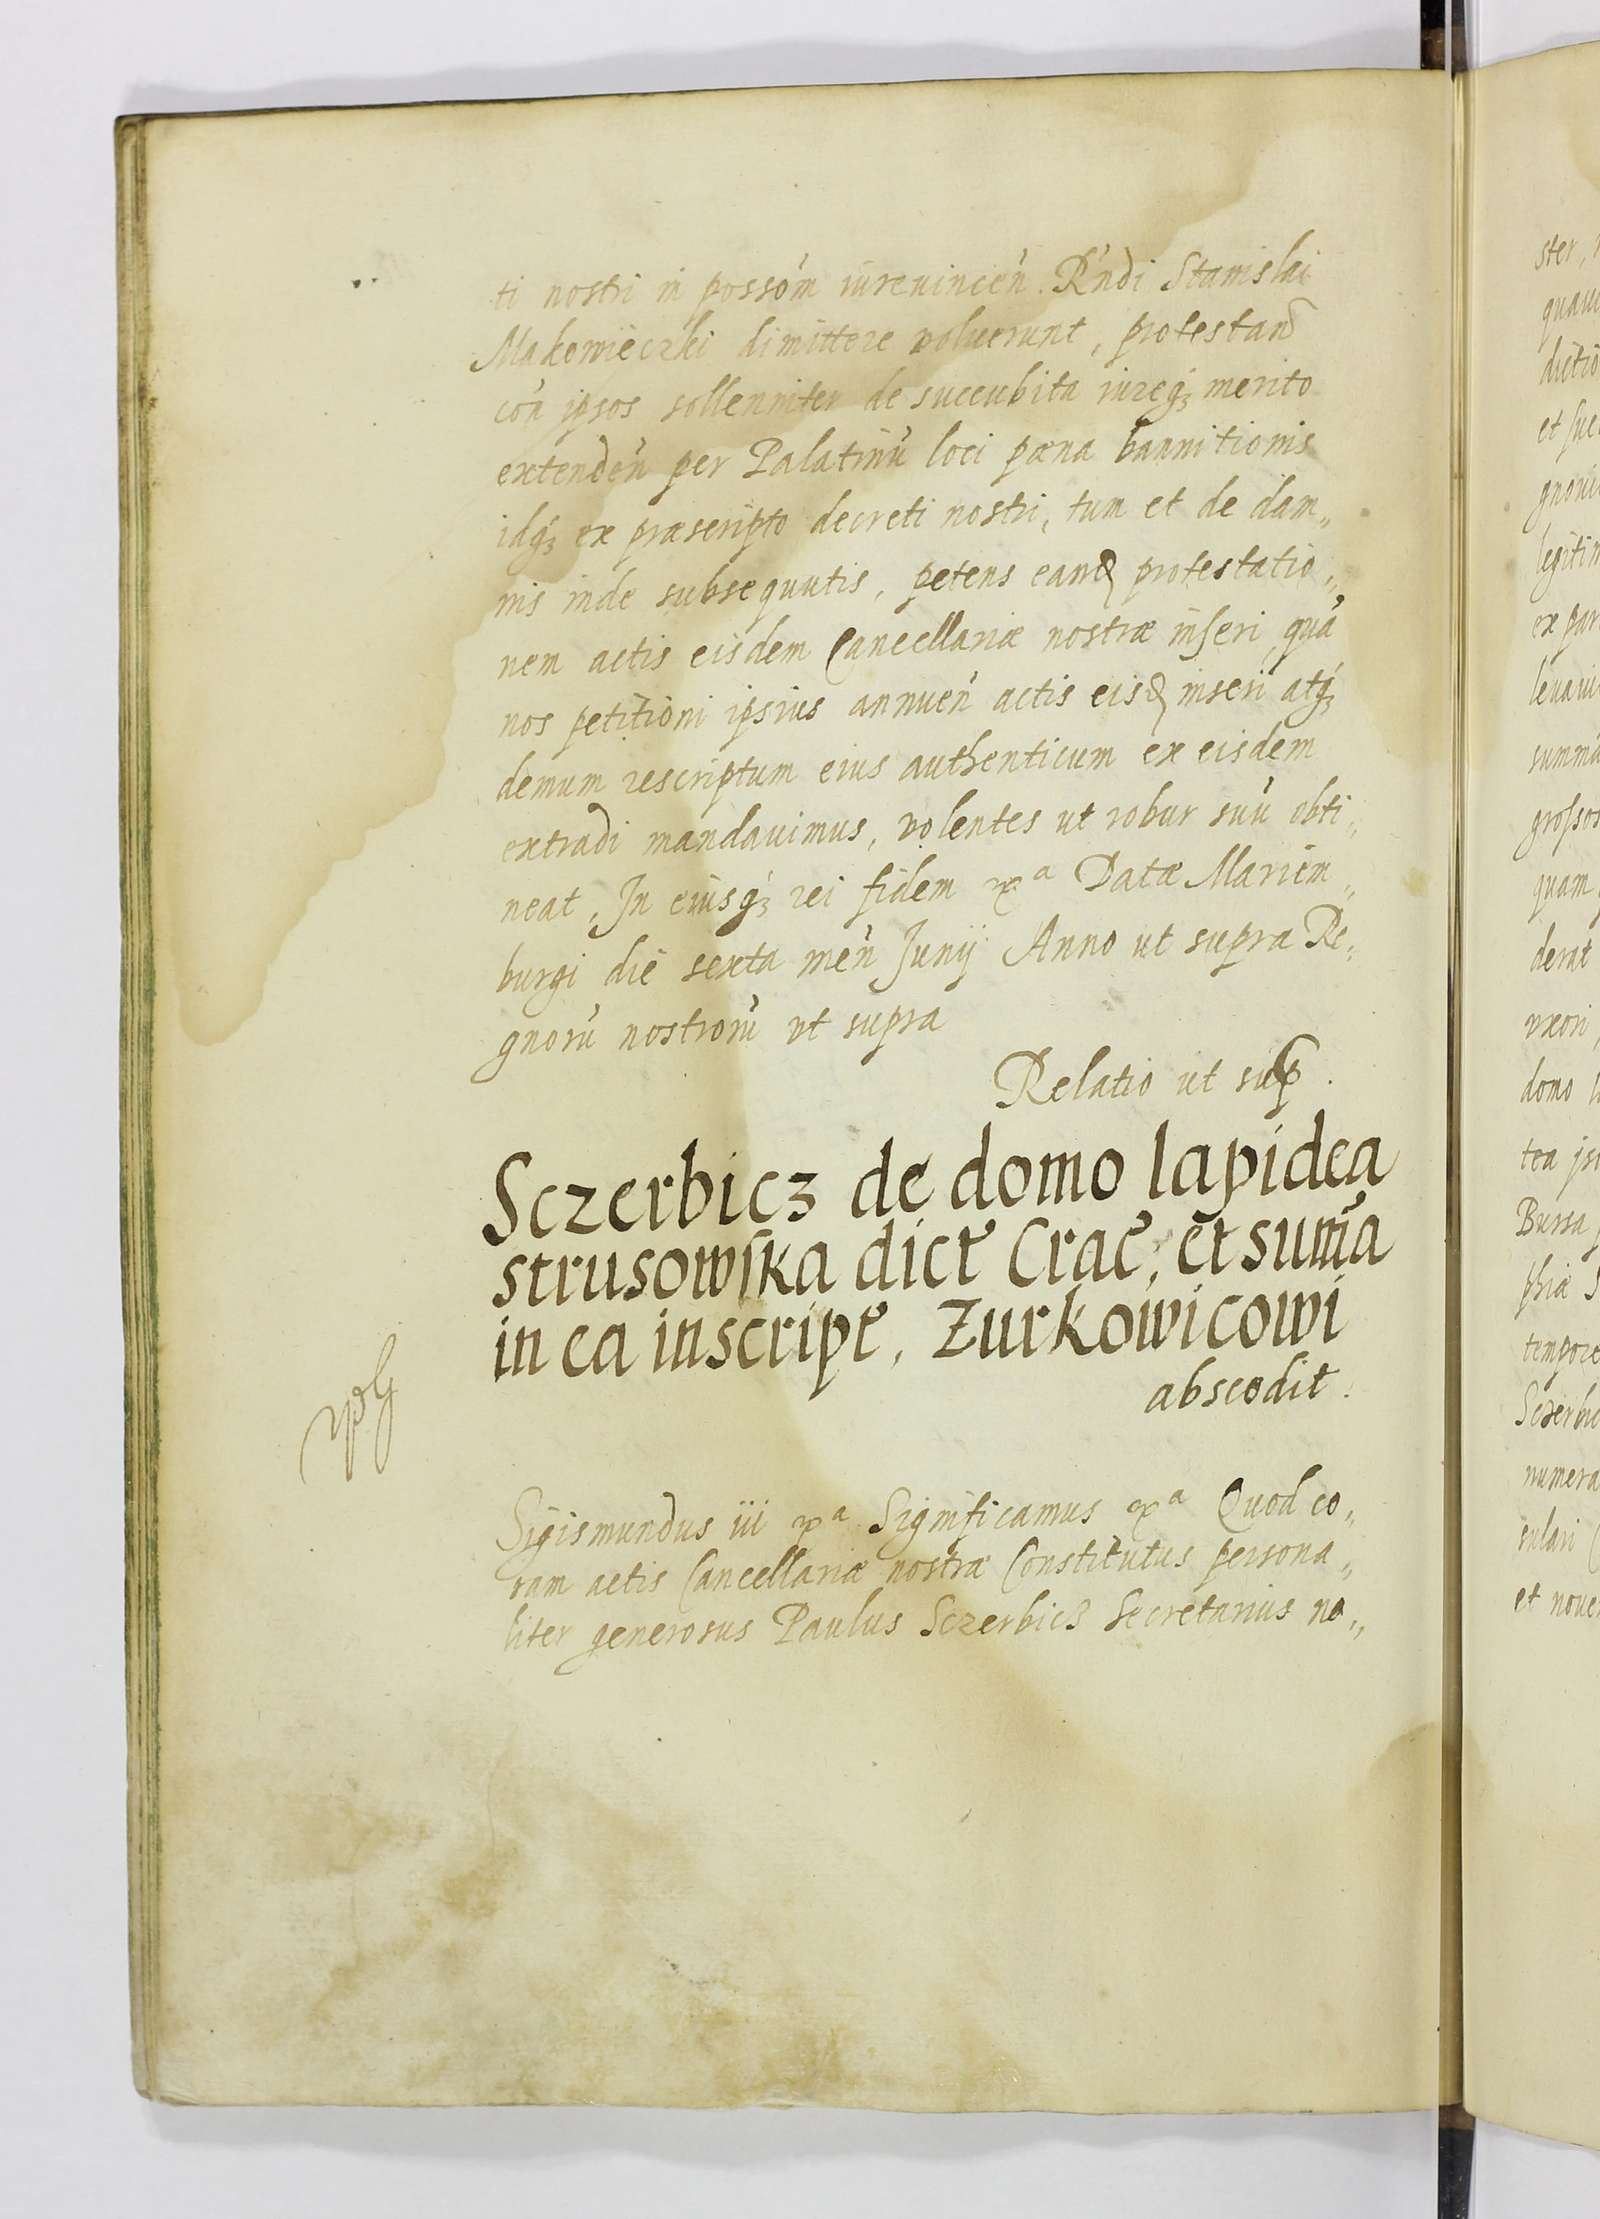 ti nostri in possom̃ iurevinceñ Rñdi Stanislai
Makowieczki dimittere voluerunt, protestañ
coñ ipsos sollenniter de succubita iureq₃ merito
extendeñ per Palatinū loci pœna bannitionis
idq₃ ex præscripto decreti nostri, tum et de dam„
nis inde subsequutis, petens eand protestatio„
nem actis eisdem Cancellariæ nostræ inseri, quā
nos petitioni ipsius annueñ actis eisd inseri atq₃
demum rescriptum eius authenticum ex eisdem
extradi mandavimus, volentes ut robur suū obti„
neat. In eiusq₃ rei fidem Datæ Mariem„
burgi die sexta meñ Junij Anno ut supra Re„
gnorū nostrorū ut supra
Relatio ut sup.
Sczerbicz de domo lapidea
strusowska dict̃ Crac̃, et sum̃a
in ea inscript̃, Zurkowicowi
abscodit.
Sigismundus iii Significamus Quod co„
ram actis Cancellariæ nostræ Constitutus persona„
liter generosus Paulus Sczerbicz Secretarius no„
ster,
dictio
legitim
ex par
summa
grossos
quam
derat
uxori,
domo
tea
Bursa
phiæ
tempore
Sczerbic
numera
sulari
et nove